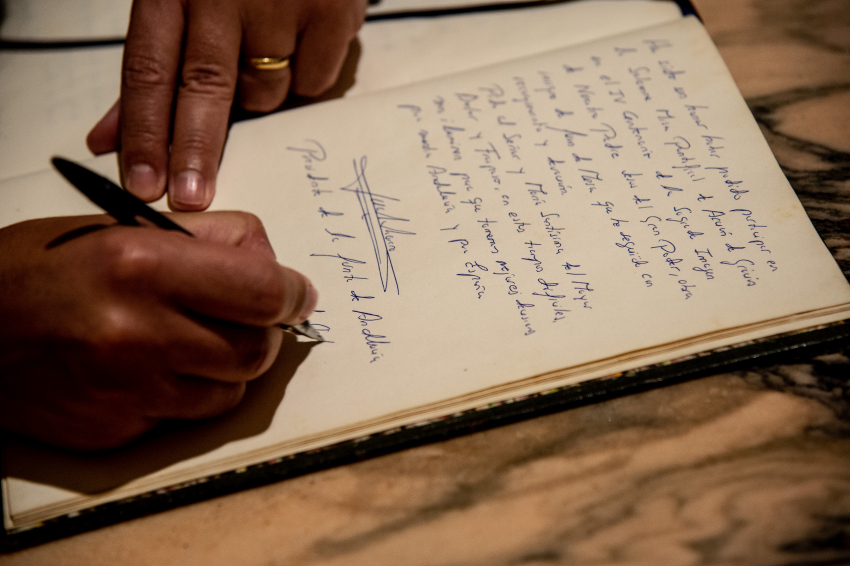 Ha sido un honor haber podido participar en
la Solemne Misa Pontifical de Acción de Gracias
en el IV Centenario de la Sagrada Imagen
de Nuestro Padre Jesús del Gran Poder, obra
de Juan de Mesa que he seguido con
y devoción.
Pido al Señor y María Santísima del Mayor
Dolor y Traspaso, en estos tiempos difíciles,
nos iluminen para que tomemos mejores decisiones
para nuestra Andalucía y para España
Presidente de la Junta de Andalucía